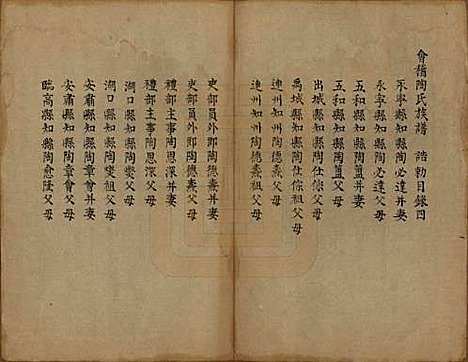 會稽陶氏族譜 誥勅目錄四
永寧縣知縣陶必達并妻
永寧縣知縣陶必達父母
五和縣知縣陶簠并妻
五和縣知縣陶簠父母
出城縣知縣陶仕傺父母
禹城縣知縣陶仕傺祖父母
連州知州陶德燾父母
連州知州陶德燾祖父母
吏部員外郎陶德燾父母
吏部員外郎陶德燾并妻
禮部主事陶恩深并妻
禮部主事陶恩深父母
湖口縣知縣陶燮父母
湖口縣知縣陶燮祖父母
安肅縣知縣陶章會并妻
安肅縣知縣陶章會父母
臨高縣知縣陶愈隆父母